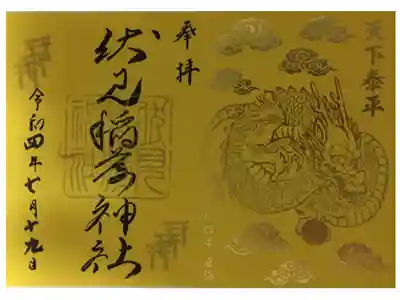 天下泰平
奉拝
伏見稲荷神社
令和四年七月十九日